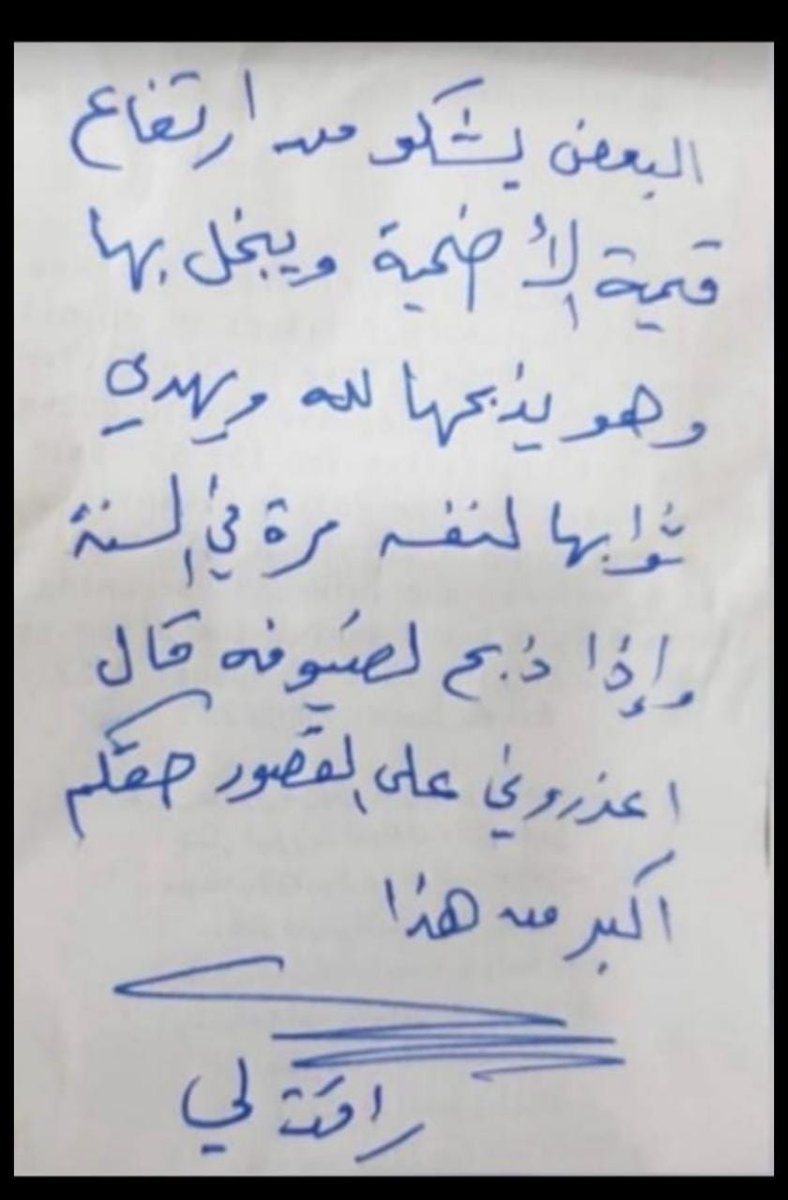 البعض يشكو من ارتفاع
قيمة الأضحية ويبخل بها
وهو يذبحها لله ويهدي
ثوابها لنفسه مرة في السنة
وإذا ذبح لضيوفه قال
اعذروني على القصور حقكم
اكبر من هذا
راقت لي